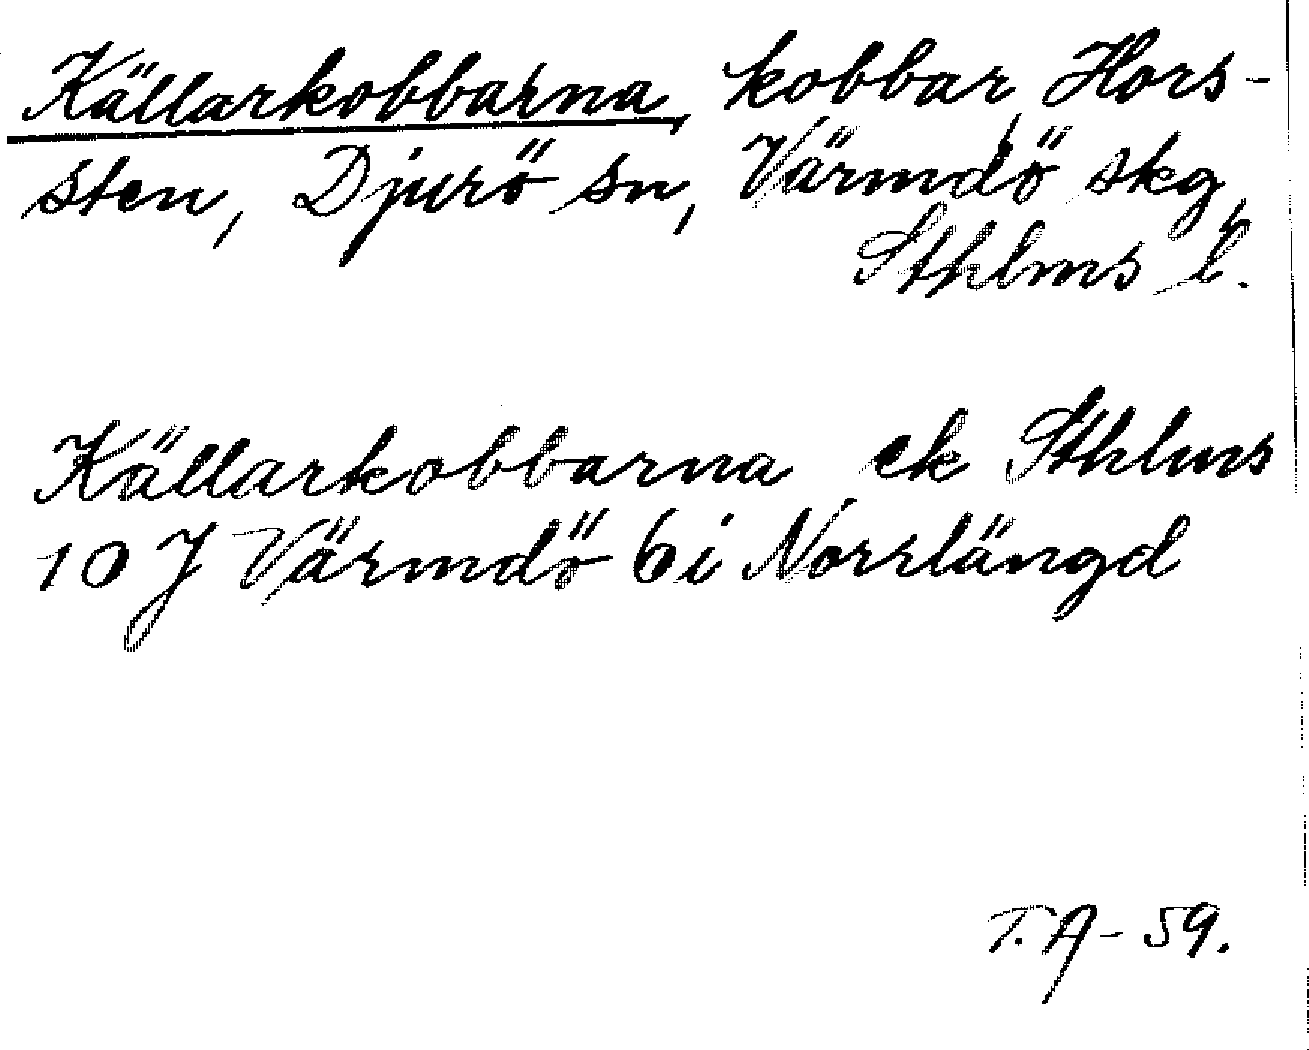 Källarkobbarna, kobbar, Hors-
sten, Djurö sn, Värmdö skg,
Sthlms l.
Källarkobbarna ek Sthlms
10 J Värmdö 6 i Norrlängd
T. A - 59.